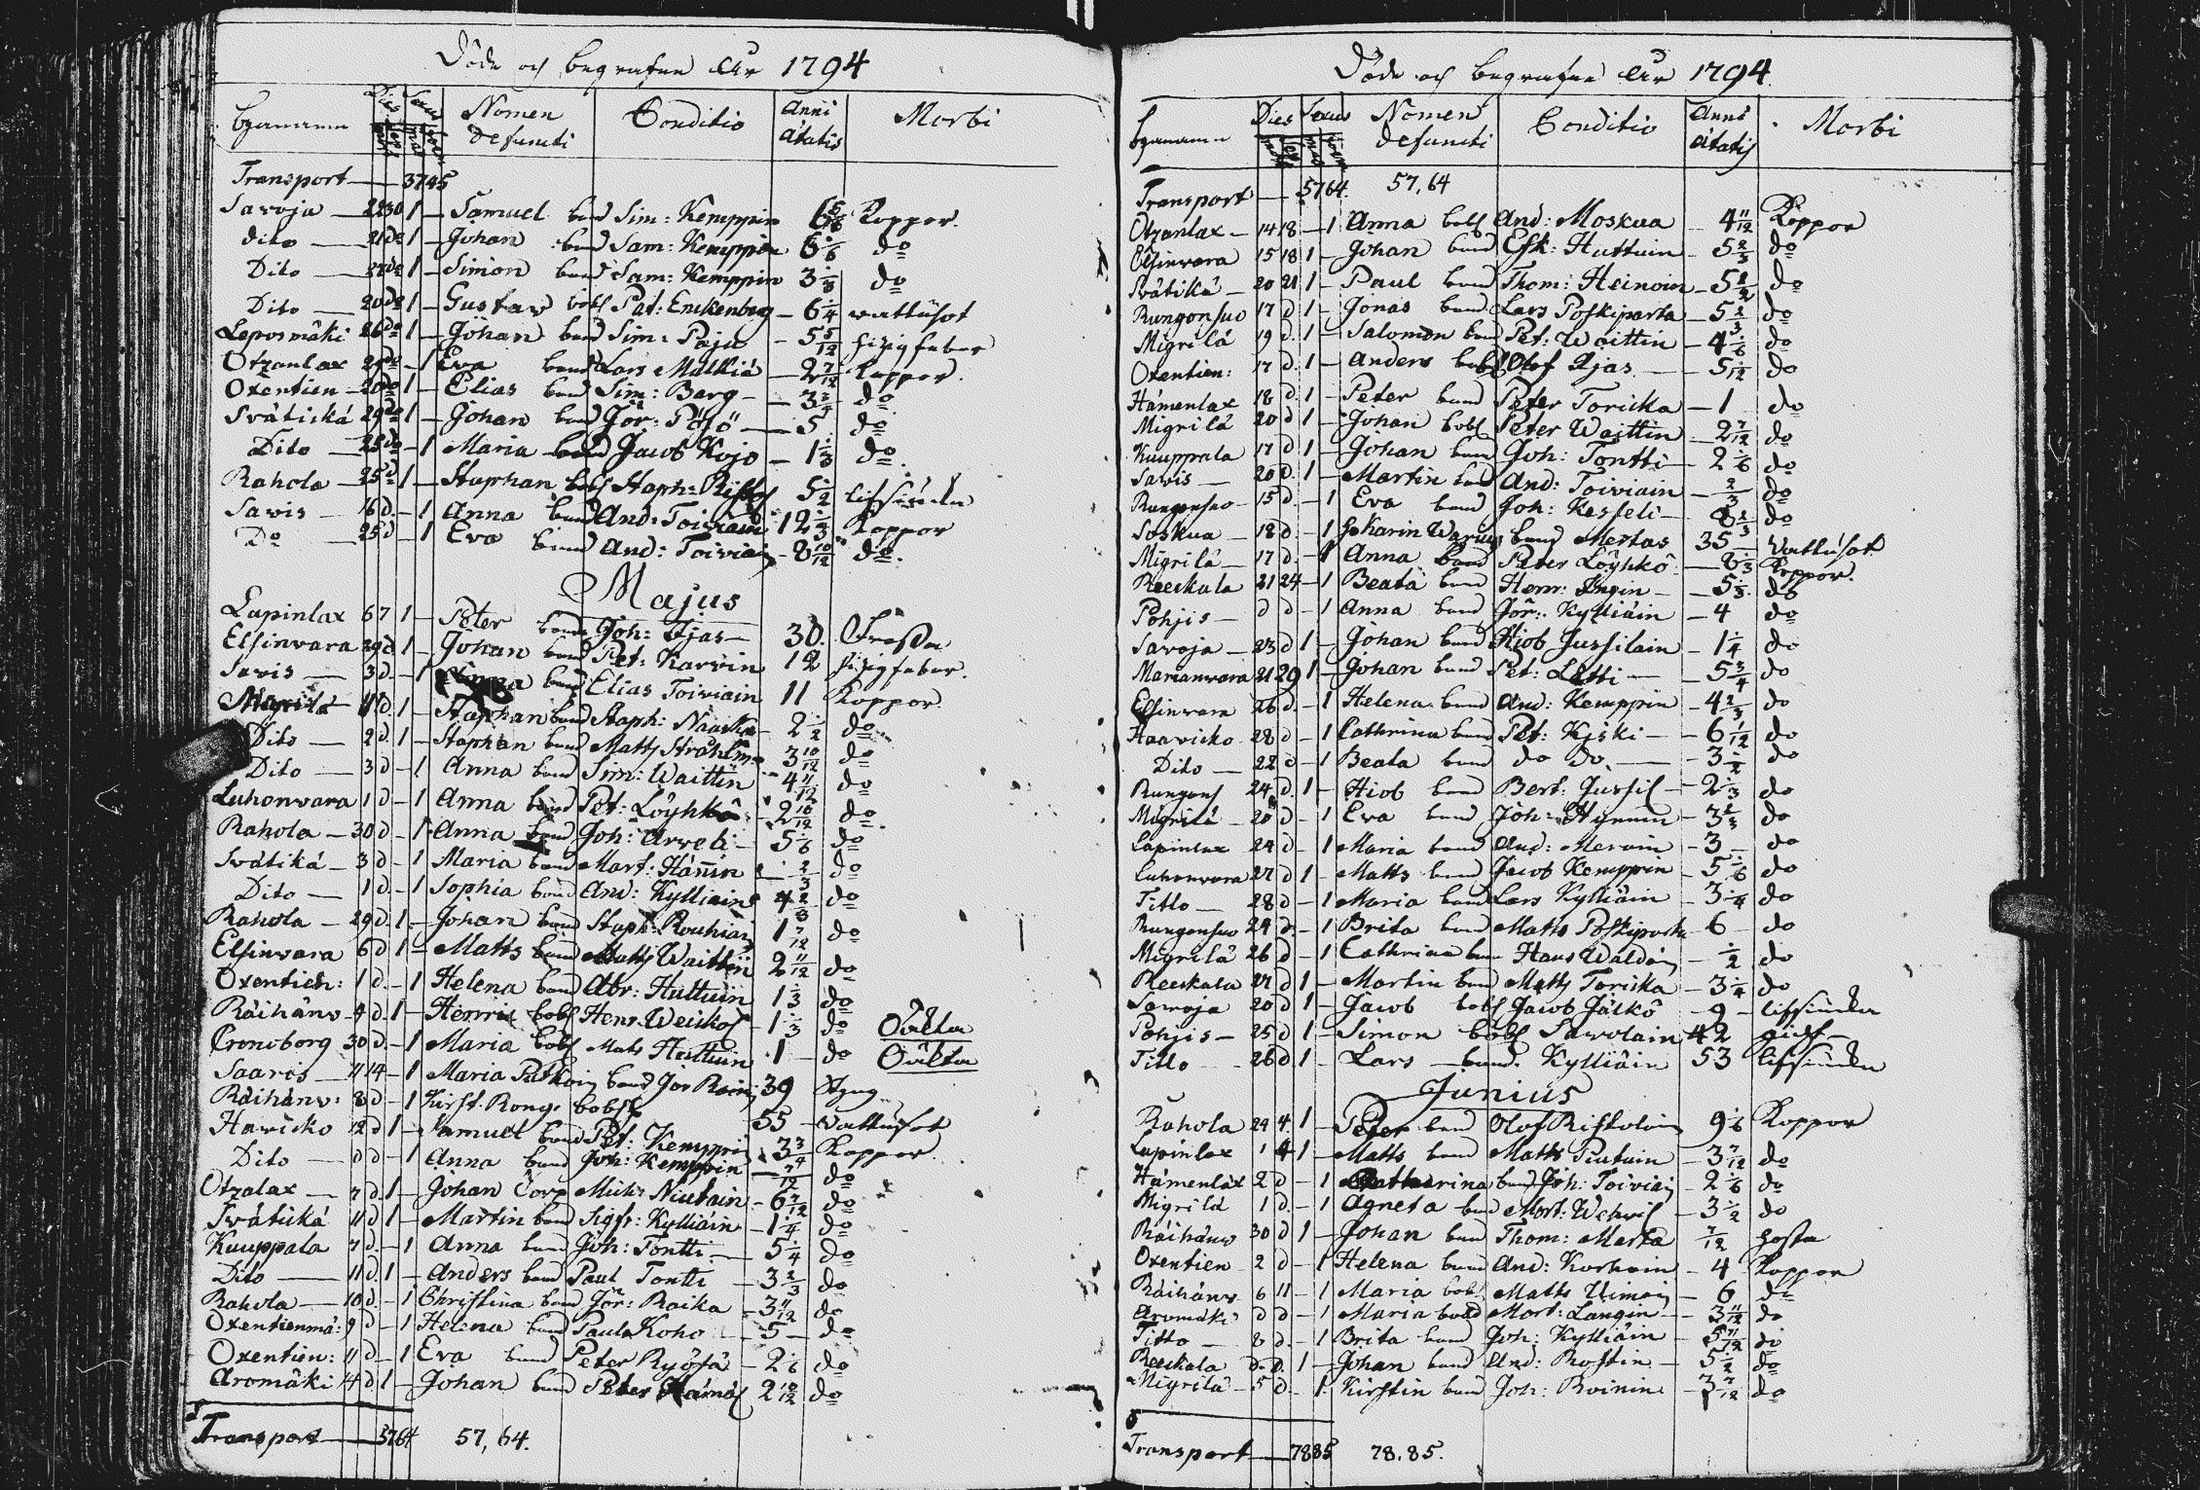 Döde och begrafne År 1794
Byarnamn Dies Sexus Nomen Defuncti Conditio Anni Ätatis Morbi
Transport — 3745
Savoja — 22 30 1 — Samuel bond Sim: Kemppin Koppor
dito — 21 do 1 — Johan bond Sam: Kemppin do
Dito — do 1 — Simon bond Sam: Kemppin do
Dito — 20 do 1 — Gustav bobs Pet: Enckenberg — 6 1/4 vattusot
Leposmäki 26 do 1 — Johan bond Sim: Paju — 5 5/12 hizigfeber
Otzanlax do — 1 Eva bond Lars Malkiä — 2 7/12 Koppor
Oxentien — 20 do 1 — Elias bond Sim: Barg — do
Svätickä 29 do 1 — Johan bond Jör: — 5 do
Dito — 25 do — 1 Maria bond Jacob Kojo — 1 1/3 do
Rahola — 25 d 1 — Staphan bobs Staph: 5 1/2 lifsiucka
Savis — 16 d — 1 Anna bond And: Toiviain 12 1/3 Koppor
Do — 25 d — 1 Eva bond And: Toiviain — 8 10/12 do
Majus
Lapinlax 6 7 1 — Peter bond Joh: Ijas — 30 Frossa
Elsinvara 29 d 1 — Johan bond Pet: Karvin 12 hizigfeber
Savis — 3 d — 1 bond Elias Toiviain 11 Koppor
Migrilä 1 d 1 — Staphan bond Staph: 2 1/2 do
Dito — 2 d 1 — Staphan bond Matts 3 10/12 do
Dito — 3 d — 1 Anna bond Sim: Waittin 4 11/12 do
Luhonvara 1 d — 1 Anna bond Pet: Löyhkö 2 10/12 do
Rahola — 30 d — 1 Anna bond Joh: Arveli — 5 1/6 do
Svätikä — 3 d — 1 Maria bond Mart: Hänin 2/3 do
Dito — 1 d — 1 Sophia bond And: Kylliäin 4 2/3 do
Rahola — 29 d 1 — Johan bond Staph: Rouhiai 1 7/12 do
Elsinvara 6 d 1 — Matts bond Matts Waittin 2 11/12 do
Oxentien: 1 d — 1 Helena bond Abr: Huttuin 1 1/3 do
Räihänv 4 d 1 — Henric bobs Henr: 1 1/3 do
Cronoborg 30 d — 1 Maria bobs Mats Huttuin 1 — do
Saaris — 11 14 — 1 Maria bond Jör 39 Styng
Räihänv: 8 d — 1 Kirst. bobs 55 — vattusot
Havicko 12 d 1 — Samuel bond Pet: Kemppi 3 3/4 Koppor
Dito — d d — 1 Anna bond Joh: Kemppin — 7/12 do
Otzalax — 7 d 1 — Johan Corp Mich: Niutain — 6 7/12 do
Svätickä 11 d 1 — Martin bond Sigfr: Kylliäin — 1 1/4 do
Kuuppala 7 d — 1 Anna bond Joh: Tontti — 5 1/4 do
Dito — 11 d 1 — Anders bond Paul Tontti — 3 2/3 do
Rahola — 10 d — 1 Christina bond Jör: Raika — 3 11/12 do
Oxentienmä: 9 d — 1 Helena bond Paul Koho — 5 — do
Oxentien: 11 d — 1 Eva bond Peter Ryösä — 2 1/6 do
Aromäki 14 d 1 — Johan bond Peter 2 10/12 do
Transport — 5764 57,64.
Döde och begrafne År 1794
Byarnamn Dies Sexus Nomen Defuncti Conditio Anni Ätatis Morbi
Transport — 5764. 57,64
Otzanlax — 14 18 — 1 Anna bobs And: Moskua — 4 11/12 Koppor
Elsinvara 15 18 1 — Johan bond Esk: Huttuin — 5 2/3 do
Svätikä — 20 21 1 — Paul bond Thom: Heinoin — 5 1/2 do
Rungonsuo 17 d 1 — Jonas bond Lars Poskiparta — 5 2/3 do
Migrilä 19 d 1 — Salomon bond Pet: Waittin — 4 1/6 do
Oxentien: 17 d 1 — Anders bobs Olof Ijas — 5 1/12 do
Hämenlax 18 d 1 — Peter bond Peter Toricka — 1 do
Migrilä 20 d 1 — Johan bobs Peter Waittin — 2 7/12 do
Kuuppala 17 d 1 — Johan bond Joh: Tontti — 2 1/6 do
Savis — 20 d 1 — Martin bond And: Toiviain — 2/3 do
Rungonsuo — 15 d — 1 Eva bond Joh: Kesseli — 8 2/3 do
Soskua — 18 d — 1 Karin bond Mertas 35 — Vattusot
Migrilä — 17 d — 1 Anna bond Peter Löyhkö — 8 1/3 Koppor
Reeskala 21 24 — 1 Beata bond Henr: Ingin — 5 1/3 do
Pohjis — d d — 1 Anna bond Jör: Kylliäin — 4 do
Savoja — 23 d 1 — Johan bond Hiob Jussilain — 1 1/4 do
Marianvara 21 29 1 — Johan bond Pet: Letti — 5 3/4 do
Elsinvara 26 d — 1 Helena bond And: Kemppin — 4 2/3 do
Haavicko 28 d — 1 Cathrina bond Pet: Kiski — 6 1/12 do
Dito — 22 d — 1 Beata bond do do — 3 1/2 do
Rungons 24 d 1 — Hiob bond Bert: Jussil — 2 1/3 do
Migrilä — 20 d — 1 Eva bond Joh: — 3 2/3 do
Lapinlax 24 d — 1 Maria bond And: Mervin — 3 — do
Luhonvara 27 d 1 — Matts bond Jacob Kemppin — 5 1/6 do
Titlo — 28 d — 1 Maria bond Lars Kylliäin — 3 1/4 do
Rungonsuo 29 d — 1 Brita bond Matts Poskiparta 6 — do
Migrilä 26 d — 1 Cathrina bon Hans — 1/2 do
Reeskala 27 d 1 — Martin bon Matts Toricka — 3 1/4 do
Savoja 20 d 1 — Jacob bobs Jacob Jälkö — 9 — lifsiucka
Pohjis — 25 d 1 — Simon bobs Savolain 42 gick—
Titlo — 26 d 1 — Lars — bond. Kylliäin 53 lifsiucka
Junius
Rahola 29 4 1 — Peter bond Olof Ristolain 9 1/6 Koppor
Lapinlax 1 4 1 — Matts bond Matts Piutuin — 3 7/12 do
Hämenlax 2 d — 1 Catharina bond Joh: Toiviai — 2 1/6 do
Migrilä 1 d — 1 Agneta bond Mart: — 3 1/2 do
Räihänv 30 d 1 — Johan bond Thom: 7/12 hosta
Oxentien 2 d — 1 Helena bond And: Korhoin — 4 Koppor
Räihänv 6 11 — 1 Maria bobs Matts — 6 do
Aromäki d d — 1 Maria bond Mort: Langin — 3 11/12 do
Titto — 8 d — 1 Brita bond Joh: Kylliäin — 5 do
Reeskala d d 1 — Johan bond And: Rostin — 5 1/2 do
Migrilä — 5 d — 1 Kirstin bond Joh: Roinin — 3 7/12 do
Transport — 7885 78.85.